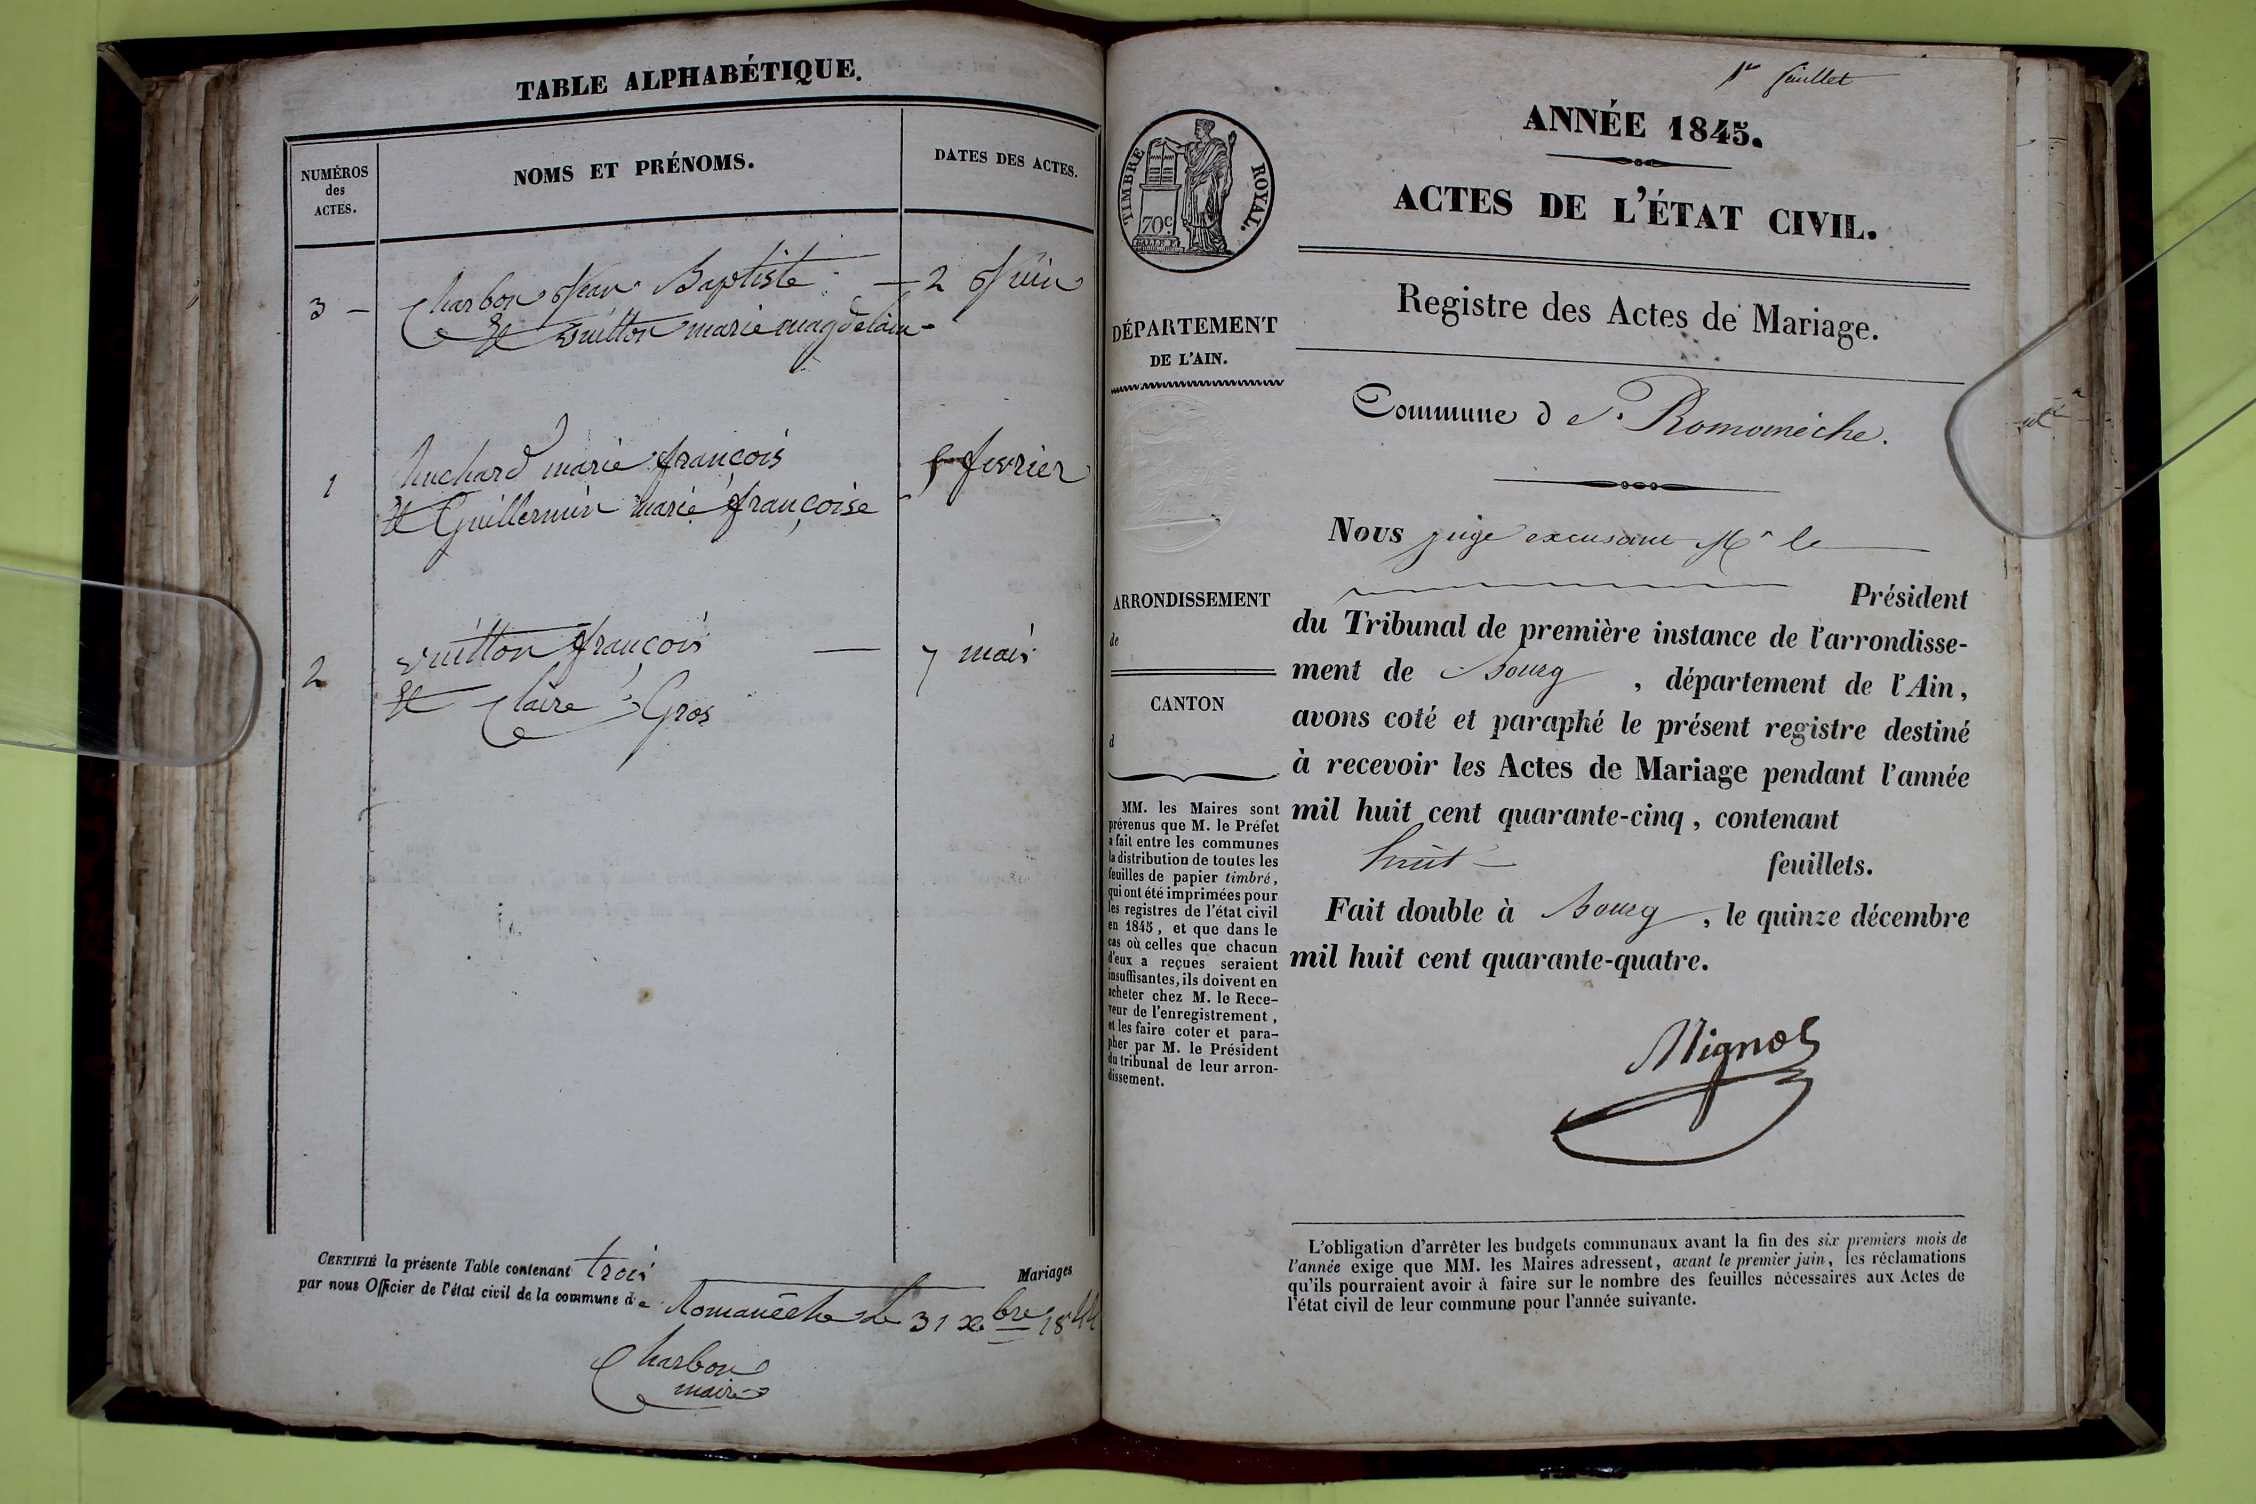 TABLE ALPHABÉTIQUE.
NUMÉROS
des
ACTES.
NOMS ET PRÉNOMS.
DATES DES ACTES.
3 – Charbon Jean Baptiste — 2 Juin
Et vuitton marie magdelaine
1 huchard marie françois février
Et Guillermin marie françoise
2 vuitton françois — 7 mais
Et Claire Gros
CERTIFIÉ la présente Table contenant trois Mariages
par nous Officier de l'état civil de la commune de Romanêche le 31 xbre 1844
Charbon
maire
1er feuillet
ANNÉE 1845.
ACTES DE L'ÉTAT CIVIL.
TIMBRE ROYAL.
70c
DÉPARTEMENT
DE L'AIN.
Registre des Actes de Mariage.
Commune de Romomèche.
Nous juge excusant Mr le
Président
du Tribunal de première instance de l'arrondisse-
ment de Bourg , département de l'Ain,
avons coté et paraphé le présent registre destiné
à recevoir les Actes de Mariage pendant l'année
mil huit cent quarante-cinq, contenant
huit feuillets.
Fait double à Bourg , le quinze décembre
mil huit cent quarante-quatre.
Mignot
ARRONDISSEMENT
de
CANTON
d
MM. les Maires sont
prévenus que M. le Préfet
a fait entre les communes
la distribution de toutes les
feuilles de papier timbré,
qui ont été imprimées pour
les registres de l'état civil
en 1845, et que dans le
cas où celles que chacun
d'eux a reçues seraient
insuffisantes, ils doivent en
acheter chez M. le Rece-
veur de l'enregistrement,
et les faire coter et para-
pher par M. le Président
du tribunal de leur arron-
dissement.
L'obligation d'arrêter les budgets communaux avant la fin des six premiers mois de
l'année exige que MM. les Maires adressent, avant le premier juin, les réclamations
qu'ils pourraient avoir à faire sur le nombre des feuilles nécessaires aux Actes de
l'état civil de leur commune pour l'année suivante.